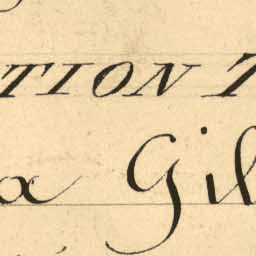 TION T
a Gil